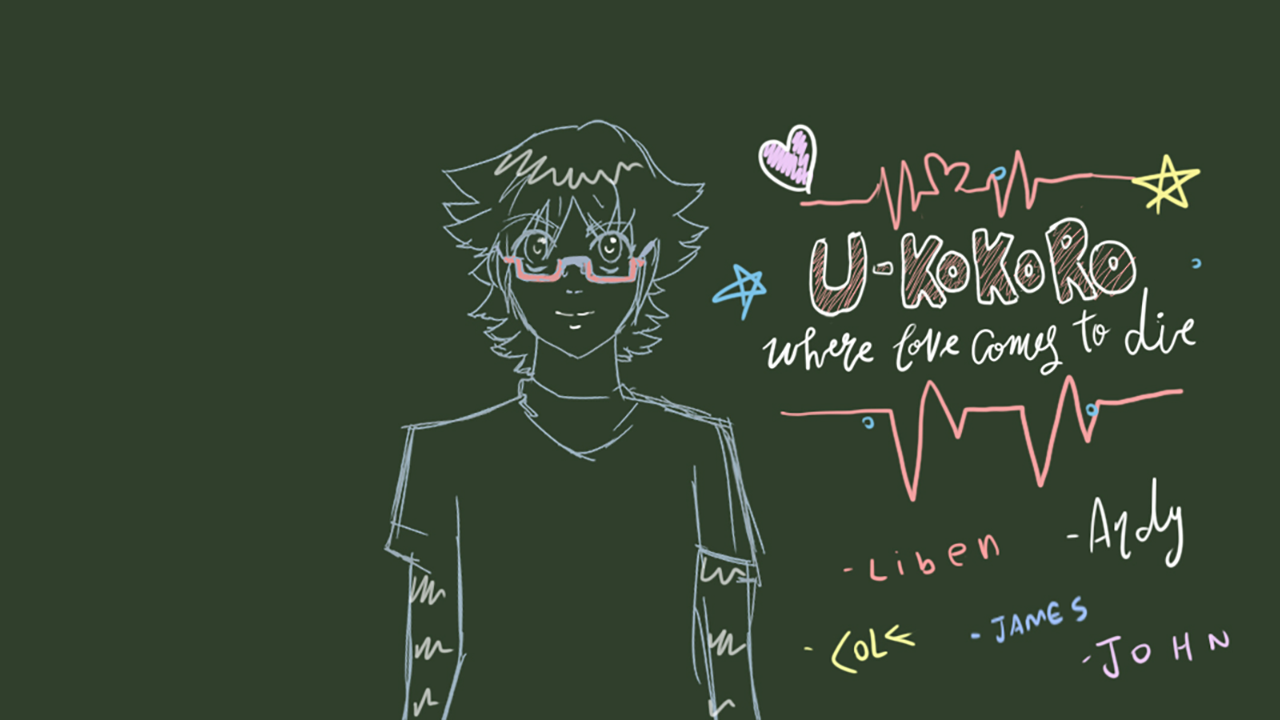 U-KOKORO
where love comes to die
- Liben
- Andy
- COLE
- JAMES
- JOHN